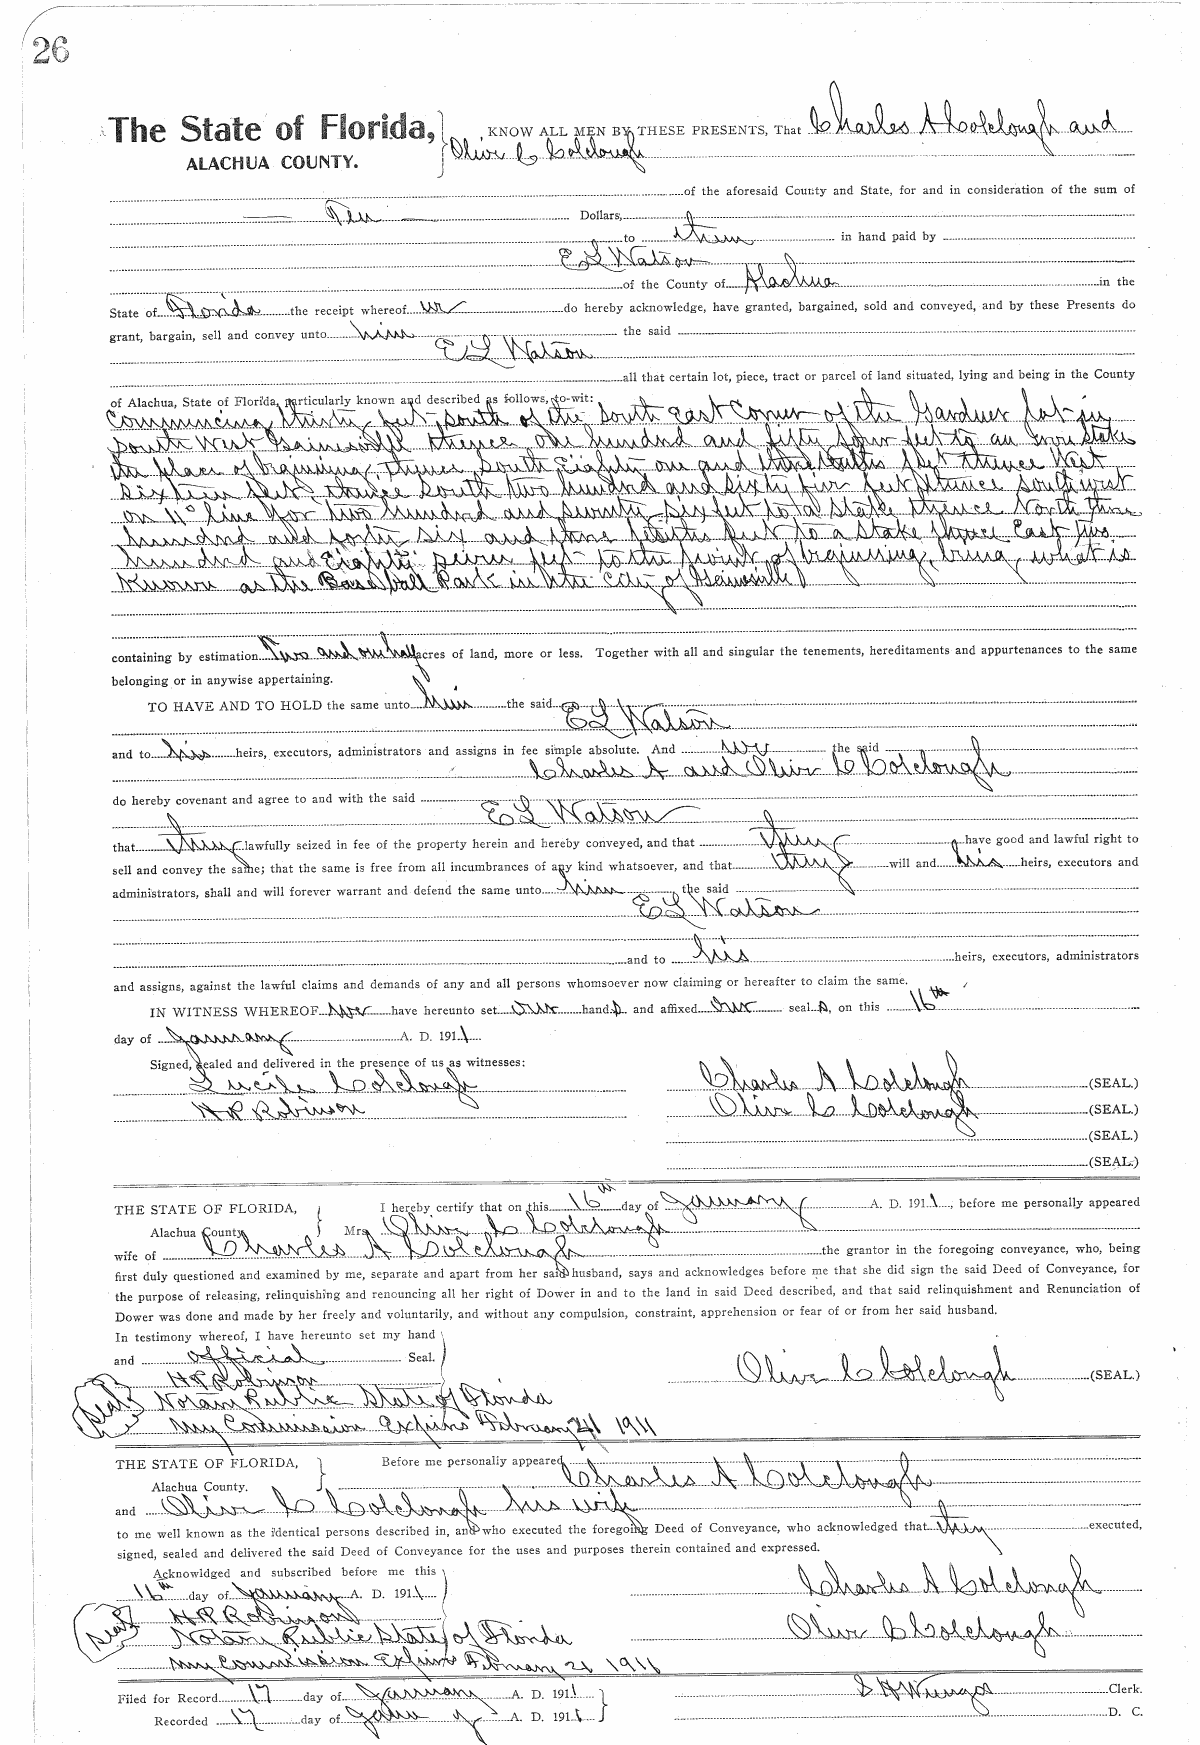 26
The State of Florida, KNOW ALL MEN BY THESE PRESENTS, That Charles A Colclough and
ALACHUA COUNTY. Olive C Colclough
of the aforesaid County and State, for and in consideration of the sum of
Ten Dollars,
to them in hand paid by
E L Watson
of the County of Alachua in the
State of Florida the receipt whereof we do hereby acknowledge, have granted, bargained, sold and conveyed, and by these Presents do
grant, bargain, sell and convey unto him the said
E L Watson
all that certain lot, piece, tract or parcel of land situated, lying and being in the County
of Alachua, State of Florida, particularly known and described as follows, to-wit:
Commencing thirty feet south of the South East Corner of the Gardner lot in
South West Gainesville thence one hundred and fifty four feet to an iron stake
the place of beginning, thence South Eighty one and three tenths feet thence West
Sixteen feet, thence South two hundred and sixty five feet thence southwest
on 11° line for two hundred and seventy six feet to a stake thence North three
hundred and forty six and three tenths feet to a stake thence East two
hundred and Eighty seven feet to the point of beginning, being what is
Known as the Baseball Park in the City of Gainesville
containing by estimation Two and one half acres of land, more or less. Together with all and singular the tenements, hereditaments and appurtenances to the same
belonging or in anywise appertaining.
TO HAVE AND TO HOLD the same unto him the said
E L Watson
and to his heirs, executors, administrators and assigns in fee simple absolute. And we the said
Charles A and Olive C Colclough
do hereby covenant and agree to and with the said
E L Watson
that they lawfully seized in fee of the property herein and hereby conveyed, and that they have good and lawful right to
sell and convey the same; that the same is free from all incumbrances of any kind whatsoever, and that they will and his heirs, executors and
administrators, shall and will forever warrant and defend the same unto him the said
E L Watson
and to his heirs, executors, administrators
and assigns, against the lawful claims and demands of any and all persons whomsoever now claiming or hereafter to claim the same.
IN WITNESS WHEREOF we have hereunto set our hands and affixed our seals, on this 16th
day of January A. D. 1911
Signed, sealed and delivered in the presence of us as witnesses:
Lucile Colclough Charles A Colclough (SEAL.)
H P Robinson Olive C Colclough (SEAL.)
(SEAL.)
(SEAL.)
THE STATE OF FLORIDA, I hereby certify that on this 16th day of January A. D. 1911, before me personally appeared
Alachua County Mrs Olive C Colclough
wife of Charles A Colclough the grantor in the foregoing conveyance, who, being
first duly questioned and examined by me, separate and apart from her said husband, says and acknowledges before me that she did sign the said Deed of Conveyance, for
the purpose of releasing, relinquishing and renouncing all her right of Dower in and to the land in said Deed described, and that said relinquishment and Renunciation of
Dower was done and made by her freely and voluntarily, and without any compulsion, constraint, apprehension or fear of or from her said husband.
In testimony whereof, I have hereunto set my hand
and official Seal.
H P Robinson Olive C Colclough (SEAL.)
Seal Notary Public State of Florida
My Commission Expires February 21 1911
THE STATE OF FLORIDA, Before me personally appeared Charles A Colclough
Alachua County.
and Olive C Colclough his wife
to me well known as the identical persons described in, and who executed the foregoing Deed of Conveyance, who acknowledged that they executed,
signed, sealed and delivered the said Deed of Conveyance for the uses and purposes therein contained and expressed.
Acknowldged and subscribed before me this
16th day of January A. D. 1911 Charles A Colclough
H P Robinson
Seal Notary Public State of Florida Olive C Colclough
My Commission Expires February 21 1911
Filed for Record 17 day of January A. D. 1911 Clerk.
Recorded 17 day of A. D. 1911 D. C.